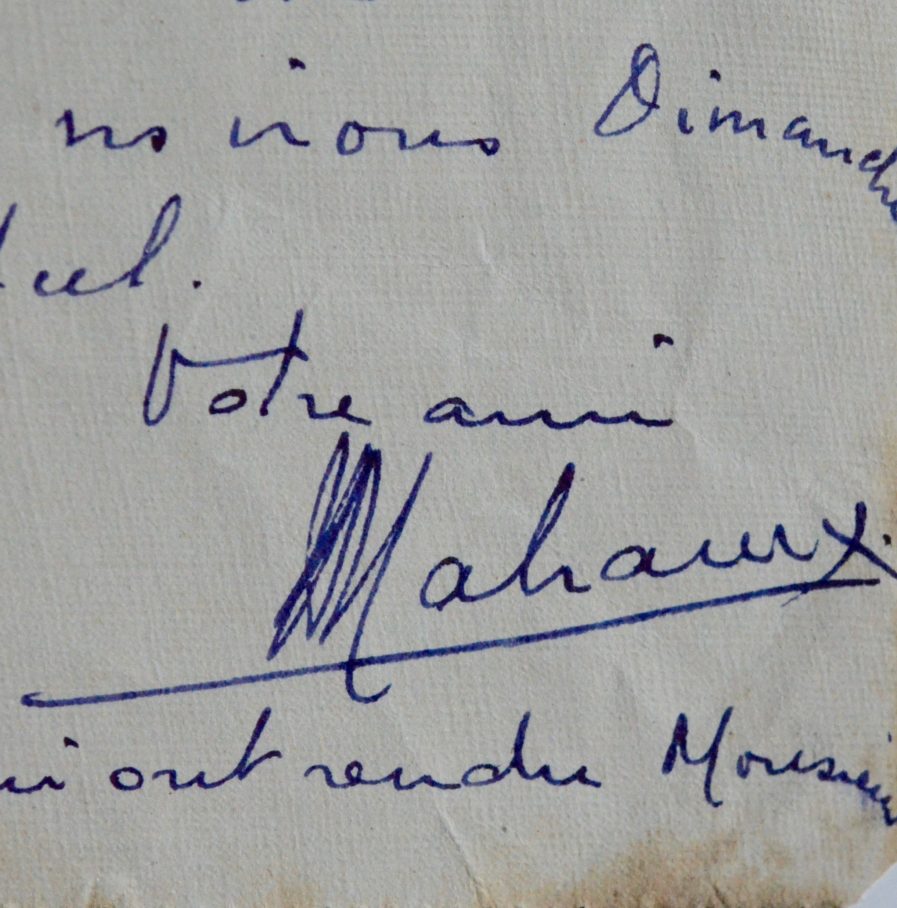 ns irons Dimanche
Votre ami
Mahaux.
ont rendu Monsieur